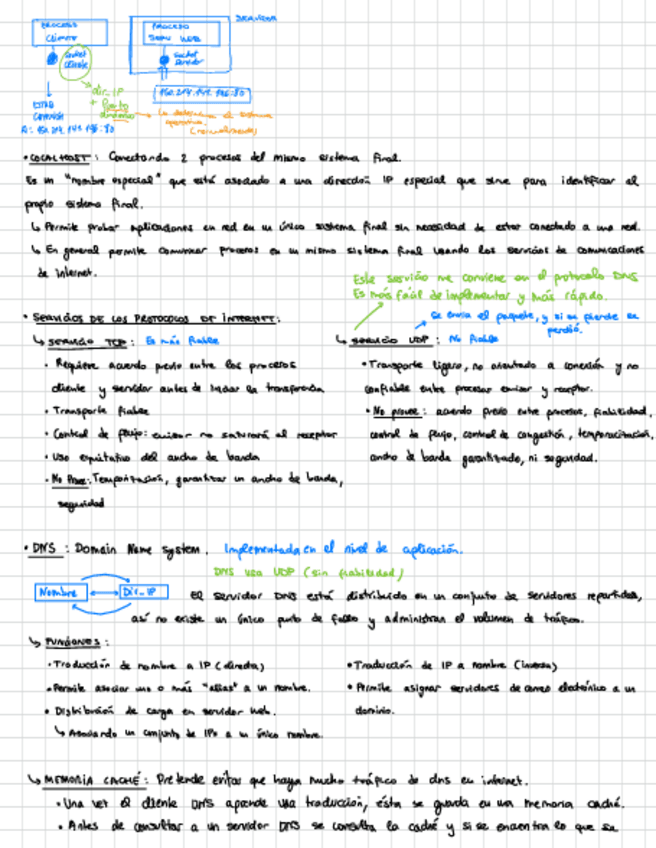 PROCESO
CLIENTE
PROCESO
SERV WEB
SERVIDOR
socket
cliente
socket
servidor
dir_IP
+ Puerto
dinámico
150.214.141.196:80
Lo determina el sistema
operativo.
(normalmente)
150.214.141.196:80
• LOCALHOST: Conectando 2 procesos del mismo sistema final.
Es un "nombre especial" que está asociado a una dirección IP especial que sirve para identificar al
propio sistema final.
↳ Permite probar aplicaciones en red en un único sistema final sin necesidad de estar conectado a una red.
↳ En general permite comunicar procesos en un mismo sistema final usando los servicios de comunicaciones
de Internet.
Este servicio me conviene en el protocolo DNS
Es más fácil de implementar y más rápido.
• SERVICIOS DE LOS PROTOCOLOS DE INTERNET:
Se envía el paquete, y si se pierde se
perdió.
↳ SERVICIO TCP: Es más fiable
• Requiere acuerdo previo entre los procesos
cliente y servidor antes de iniciar la transferencia
• Transporte fiable
• Control de flujo: emisor no saturará al receptor
• Uso equitativo del ancho de banda
• No Provee: Temporización, garantizar un ancho de banda,
seguridad
↳ SERVICIO UDP: No fiable
• Transporte ligero, no orientado a conexión y no
confiable entre procesos emisor y receptor.
• No provee: acuerdo previo entre procesos, fiabilidad,
control de flujo, control de congestión, temporización,
ancho de banda garantizado, ni seguridad.
• DNS: Domain Name system. Implementada en el nivel de aplicación.
DNS usa UDP (sin fiabilidad)
Nombre
Dir_IP
El servidor DNS está distribuido en un conjunto de servidores repartidos,
así no existe un único punto de fallo y administran el volumen de tráfico.
↳ FUNCIONES:
• Traducción de nombre a IP (directa)
• Permite asociar uno o más "alias" a un nombre.
• Distribución de carga en servidor web.
↳ Asociando un conjunto de IPs a un único nombre.
• Traducción de IP a nombre (inversa)
• Permite asignar servidores de correo electrónico a un
dominio.
↳ MEMORIA CACHÉ: Pretende evitar que haya mucho tráfico de dns en internet.
• Una vez el cliente DNS aprende una traducción, ésta se guarda en una memoria caché.
• Antes de consultar a un servidor DNS se consulta la caché y si se encuentra lo que se